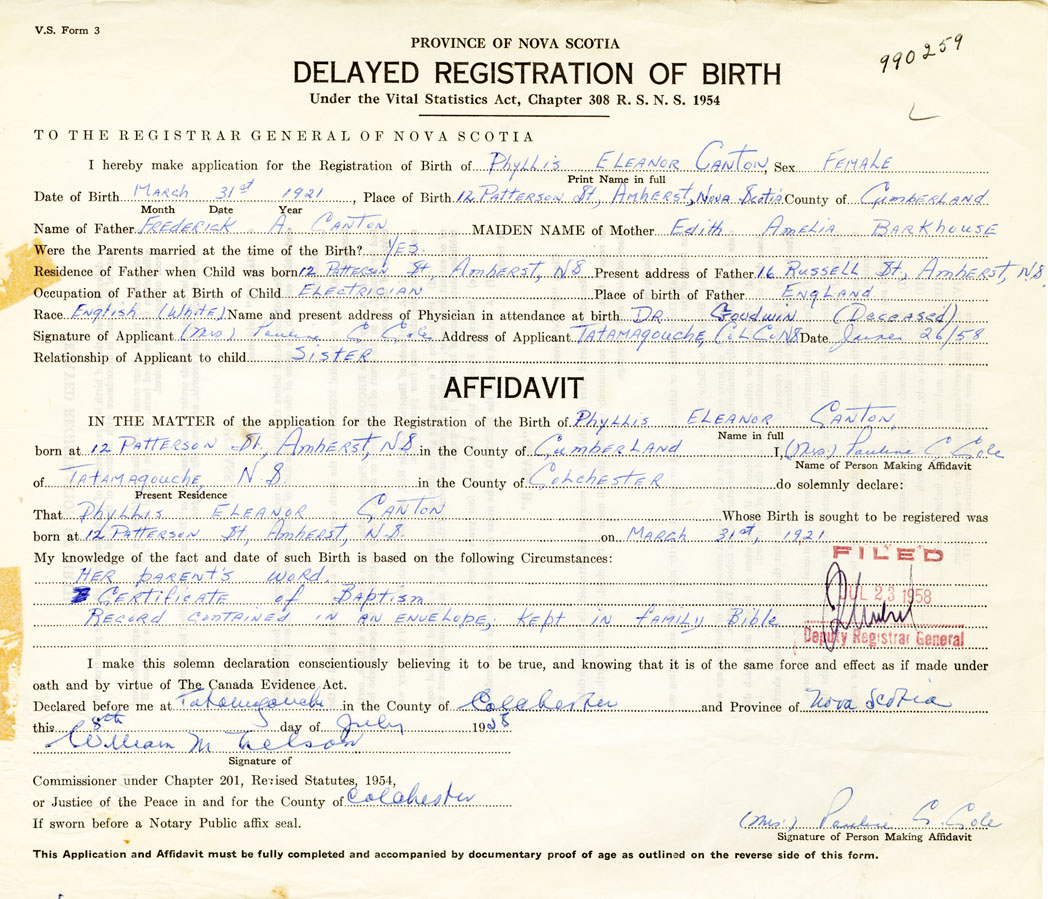 V.S. Form 3
990259
PROVINCE OF NOVA SCOTIA
DELAYED REGISTRATION OF BIRTH
Under the Vital Statistics Act, Chapter 308 R. S. N. S. 1954
TO THE REGISTRAR GENERAL OF NOVA SCOTIA
I hereby make application for the Registration of Birth of Phyllis Eleanor Canton, Sex Female
Print Name in full
Date of Birth March 31st 1921, Place of Birth 12 Patterson St, Amherst, Nova Scotia County of Cumberland
Month Date Year
Name of Father Frederick A. Canton MAIDEN NAME of Mother Edith Amelia Barkhouse
Were the Parents married at the time of the Birth? Yes
Residence of Father when Child was born 12 Patterson St, Amherst, NS Present address of Father 16 Russell St., Amherst, NS.
Occupation of Father at Birth of Child Electrician Place of birth of Father England
Race English (White) Name and present address of Physician in attendance at birth DR Goodwin (Deceased)
Signature of Applicant (Mrs) Pauline C Cole Address of Applicant Tatamagouche, Col. Co. NS Date June 26/58
Relationship of Applicant to child Sister
AFFIDAVIT
IN THE MATTER of the application for the Registration of the Birth of Phyllis Eleanor Canton,
Name in full
born at 12 Patterson St, Amherst, NS in the County of Cumberland I, (Mrs) Pauline C. Cole
Name of Person Making Affidavit
of Tatamagouche, N.S. in the County of Colchester do solemnly declare:
Present Residence
That Phyllis Eleanor Canton Whose Birth is sought to be registered was
born at 12 Patterson St, Amherst, N.S. on March 31st, 1921
My knowledge of the fact and date of such Birth is based on the following Circumstances:
FILED
Her parent's word.
Certificate of Baptism
JUL 23 1958
Record contained in an envelope, kept in family Bible
Deputy Registrar General
I make this solemn declaration conscientiously believing it to be true, and knowing that it is of the same force and effect as if made under
oath and by virtue of The Canada Evidence Act.
Declared before me at Tatamagouche in the County of Colchester and Province of Nova Scotia
this 8th day of July 1958
William M Nelson
Signature of
Commissioner under Chapter 201, Revised Statutes, 1954,
or Justice of the Peace in and for the County of Colchester
If sworn before a Notary Public affix seal.
(Mrs.) Pauline C. Cole
Signature of Person Making Affidavit
This Application and Affidavit must be fully completed and accompanied by documentary proof of age as outlined on the reverse side of this form.